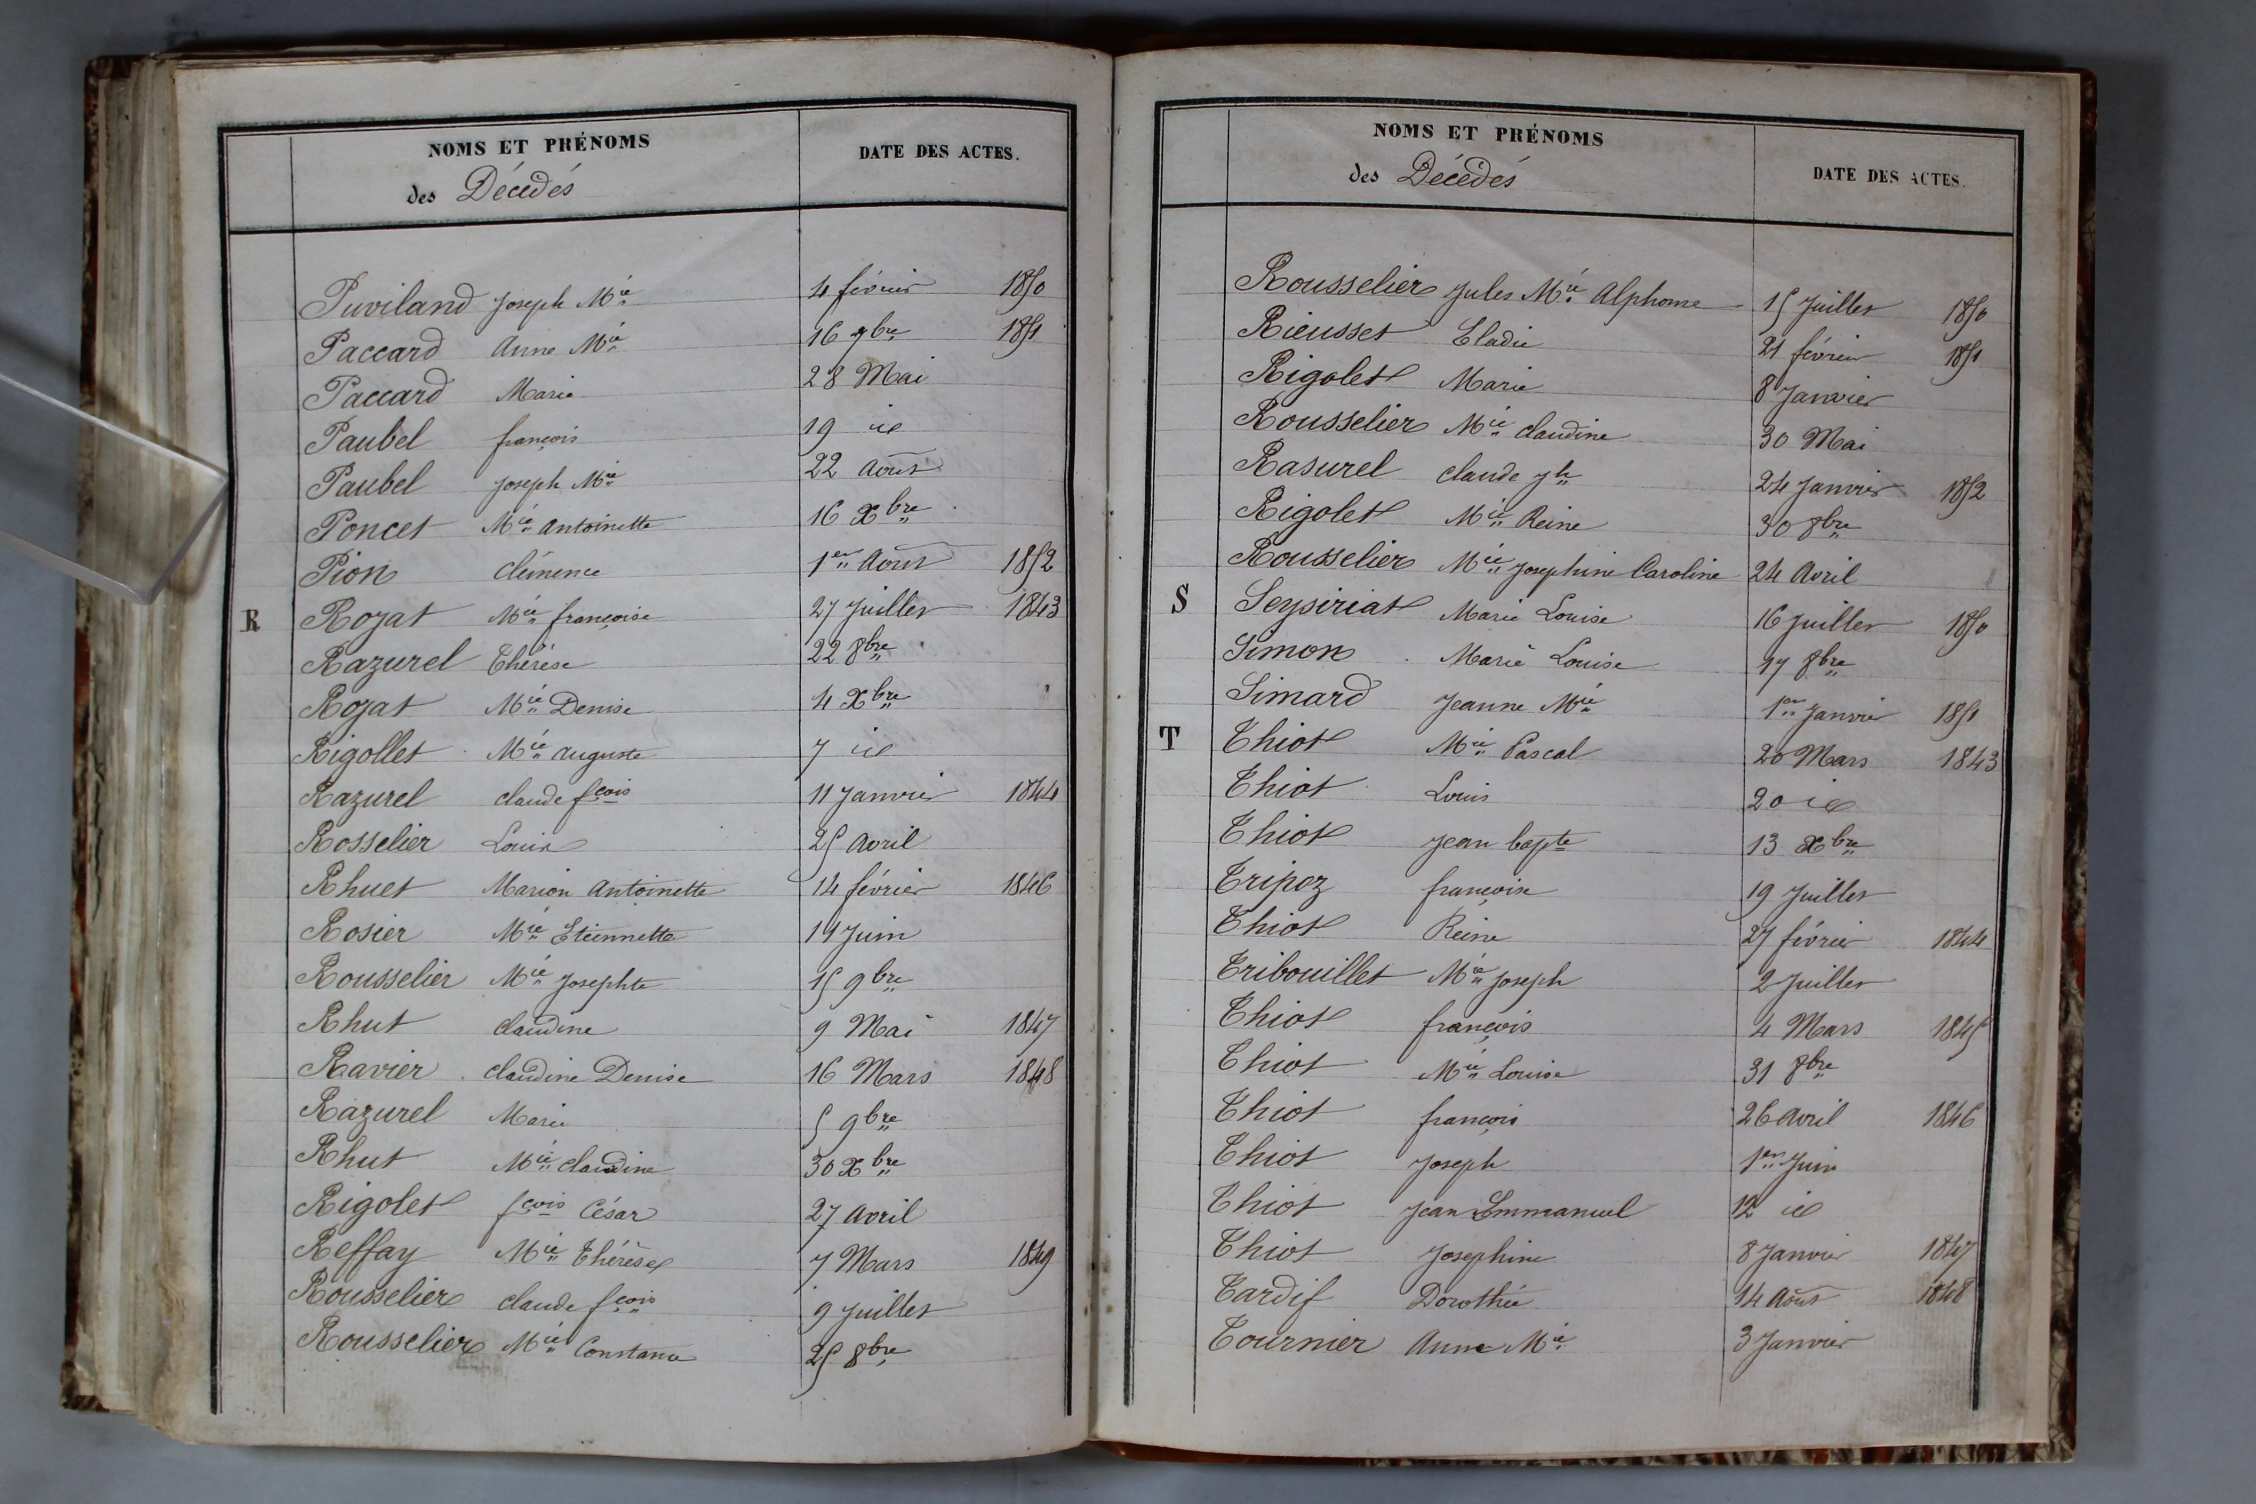 NOMS ET PRÉNOMS
des Décédés
DATE DES ACTES.
Puviland Joseph Mie 4 février 1850
Paccard Anne Mie 16 9bre 1851
Paccard Marie 28 Mai
Paubel françois 19 id
Paubel Joseph Mie 22 Aout
Poncet Mie Antoinette 16 Xbre
Pion Clémence 1er Aout 1852
R Rozat Mie françoise 27 Juillet 1843
Razurel Thérèse 22 8bre
Rozat Mie Denise 4 Xbre
Rigollet Mie Auguste 7 id
Razurel Claude fçois 11 Janvier 1844
Rosselier Louis 25 Avril
Rhuet Marion Antoinette 14 février 1846
Rosier Mie Etiennette 14 Juin
Rousselier Mie Josephte 15 9bre
Rhut Claudine 9 Mai 1847
Ravier Claudine Denise 16 Mars 1848
Razurel Marie 5 9bre
Rhut Mie Claudine 30 Xbre
Rigolet fçois César 27 Avril
Reffay Mie Thérèse 7 Mars 1849
Rousselier Claude fçois 9 Juillet
Rousselier Mie Constance 25 8bre
NOMS ET PRÉNOMS
des Décédés
DATE DES ACTES.
Rousselier Jules Mie Alphonse 15 Juillet 1850
Rieusset Eladie 21 février 1851
Rigolet Marie 8 Janvier
Rousselier Mie Claudine 30 Mai
Rasurel Claude Jh 24 Janvier 1852
Rigolet Mie Reine 30 8bre
Rousselier Mie Josephine Caroline 24 Avril
S Seysiriat Marie Louise 16 Juillet 1850
Simon Marie Louise 17 8bre
Simard Jeanne Mie 1er Janvier 1851
T Thiot Mie Pascal 20 Mars 1843
Thiot Louis 20 id
Thiot Jean bapte 13 Xbre
Tripoz françoise 19 Juillet
Thiot Reine 27 février 1844
Tribouillet Mie Joseph 2 Juillet
Thiot françois 4 Mars 1845
Thiot Mie Louise 31 8bre
Thiot françois 26 Avril 1846
Thiot Joseph 1er Juin
Thiot Jean Emmanuel 12 id
Thiot Josephine 8 Janvier 1847
Tardif Dorothée 14 Aout 1848
Tournier Anne Mie 3 Janvier